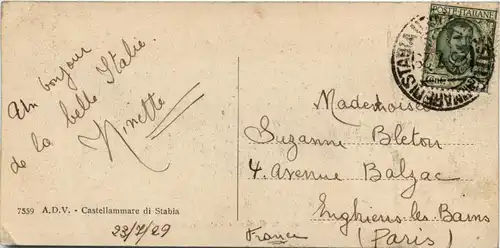 Un bonjour
de la belle Italie.
Ninette
7559 A.D.V. - Castellammare di Stabia
23/7/29
POSTE·ITALIANE
Mademoiselle
Suzanne Bleton
4. Avenue Balzac
Enghiens-les-Bains
(Paris)
France